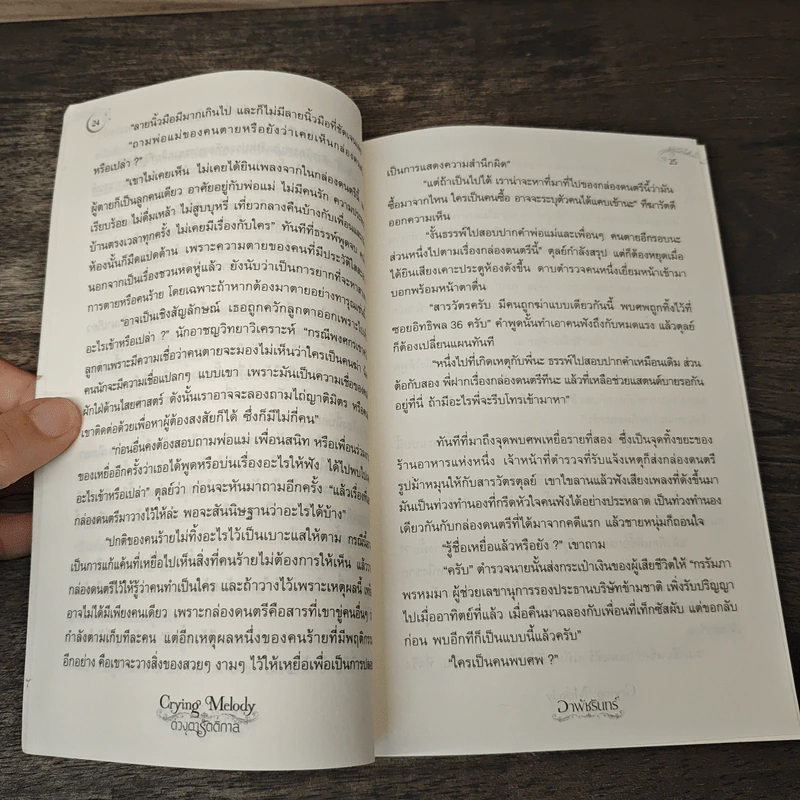 24
“ลายนิ้วมือมีมากเกินไป และก็ไม่มีลายนิ้วมือที่ชัดเจน
“ถามพ่อแม่ของคนตายหรือยังว่าเคยเห็นกล่องดนตรี
หรือเปล่า ?”
“เขาไม่เคยเห็น ไม่เคยได้ยินเพลงจากในกล่องดนตรีนี้
ผู้ตายก็เป็นลูกคนเดียว อาศัยอยู่กับพ่อแม่ ไม่มีคนรัก ความประ
เรียบร้อย ไม่ดื่มเหล้า ไม่สูบบุหรี่ เที่ยวกลางคืนบ้างกับเพื่อน
บ้านตรงเวลาทุกครั้ง ไม่เคยมีเรื่องกับใคร” ทันทีที่ธรรพ์พูดจบ
ห้องนั้นก็มืดแปดด้าน เพราะความตายของคนที่มีประวัติใส
นอกจากเป็นเรื่องชวนหดหู่แล้ว ยังนับว่าเป็นการยากที่จะหา
การตายหรือคนร้าย โดยเฉพาะถ้าหากต้องมาตายอย่างทารุณ
“อาจเป็นเชิงสัญลักษณ์ เธอถูกควักลูกตาออกเพราะ
อะไรเข้าหรือเปล่า ?” นักอาชญวิทยาวิเคราะห์ “กรณีพงศกร
ลูกตาเพราะมีความเชื่อว่าคนตายจะมองไม่เห็นว่าใครเป็นคนฆ่า
คนนักจะมีความเชื่อแปลกๆ แบบเขา เพราะมันเป็นความเชื่อของ
ฝักใฝ่ด้านไสยศาสตร์ ดังนั้นเราอาจจะลองถามไถ่ญาติมิตร หรือ
เขาติดต่อด้วยเพื่อหาผู้ต้องสงสัยก็ได้ ซึ่งก็มีไม่กี่คน”
“ก่อนอื่นคงต้องสอบถามพ่อแม่ เพื่อนสนิท หรือเพื่อนร่วม
ของเหยื่ออีกครั้งว่าเธอได้พูดหรือบ่นเรื่องอะไรให้ฟัง ได้ไปพบ
อะไรเข้าหรือเปล่า” ตุลย์ว่า ก่อนจะหันมาถามอีกครั้ง “แล้วเรื่อง
กล่องดนตรีมาวางไว้ให้ล่ะ พอจะสันนิษฐานว่าอะไรได้บ้าง”
“ปกติของคนร้ายไม่ทิ้งอะไรไว้เป็นเบาะแสให้ตาม กรณีนี้
เป็นการแก้แค้นที่เหยื่อไปเห็นสิ่งที่คนร้ายไม่ต้องการให้เห็น แล้ว
กล่องดนตรีไว้ให้รู้ว่าคนทำเป็นใคร และถ้าวางไว้เพราะเหตุผลนี้
อาจไม่ได้มีเพียงคนเดียว เพราะกล่องดนตรีคือสารที่เขาขู่คนอื่นๆ ว่า
กำลังตามเก็บทีละคน แต่อีกเหตุผลหนึ่งของคนร้ายที่มีพฤติกรรม
อีกอย่าง คือเขาจะวางสิ่งของสวยๆ งามๆ ไว้ให้เหยื่อเพื่อเป็นการปลอบ
Crying Melody
ดวงตารัตติกาล
25
เป็นการแสดงความสำนึกผิด”
“แต่ถ้าเป็นไปได้ เราน่าจะหาที่มาที่ไปของกล่องดนตรีนี้ว่ามัน
ซื้อมาจากไหน ใครเป็นคนซื้อ อาจจะระบุตัวคนได้แคบเข้านะ” ทีฆารัตติ
ออกความเห็น
“งั้นธรรพ์ไปสอบปากคำพ่อแม่และเพื่อนๆ คนตายอีกรอบนะ
ส่วนหนึ่งไปตามเรื่องกล่องดนตรีนี้” ตุลย์กำลังสรุป แต่ก็ต้องหยุดเมื่อ
ได้ยินเสียงเคาะประตูห้องดังขึ้น ดาบตำรวจคนหนึ่งเยี่ยมหน้าเข้ามา
บอกพร้อมหน้าตาตื่น
“สารวัตรครับ มีคนถูกฆ่าแบบเดียวกันนี้ พบศพถูกทิ้งไว้ที่
ซอยอิทธิพล 36 ครับ” คำพูดนั้นทำเอาคนฟังถึงกับหมดแรง แล้วตุลย์
ก็ต้องเปลี่ยนแผนทันที
“หนึ่งไปที่เกิดเหตุกับพี่นะ ธรรพ์ไปสอบปากคำเหมือนเดิม ส่วน
ต้อกับสอง พี่ฝากเรื่องกล่องดนตรีทีนะ แล้วที่เหลือช่วยแสตนด์บายรอกัน
อยู่ที่นี่ ถ้ามีอะไรพี่จะรีบโทรเข้ามาหา”
ทันทีที่มาถึงจุดพบศพเหยื่อรายที่สอง ซึ่งเป็นจุดทิ้งขยะของ
ร้านอาหารแห่งหนึ่ง เจ้าหน้าที่ตำรวจที่รับแจ้งเหตุก็ส่งกล่องดนตรี
รูปม้าหมุนให้กับสารวัตรตุลย์ เขาไขลานแล้วฟังเสียงเพลงที่ดังขึ้นมา
มันเป็นท่วงทำนองที่กรีดหัวใจคนฟังได้อย่างประหลาด เป็นท่วงทำนอง
เดียวกันกับกล่องดนตรีที่ได้มาจากคดีแรก แล้วชายหนุ่มก็ถอนใจ
“รู้ชื่อเหยื่อแล้วหรือยัง ?” เขาถาม
“ครับ” ตำรวจนายนั้นส่งกระเป๋าเงินของผู้เสียชีวิตให้ “กรรัมภา
พรหมมา ผู้ช่วยเลขานุการรองประธานบริษัทข้ามชาติ เพิ่งรับปริญญา
ไปเมื่ออาทิตย์ที่แล้ว เมื่อคืนมาฉลองกับเพื่อนที่เท็กซัสผับ แต่ขอกลับ
ก่อน พบอีกทีก็เป็นแบบนี้แล้วครับ”
“ใครเป็นคนพบศพ ?”
อาพัชรินทร์